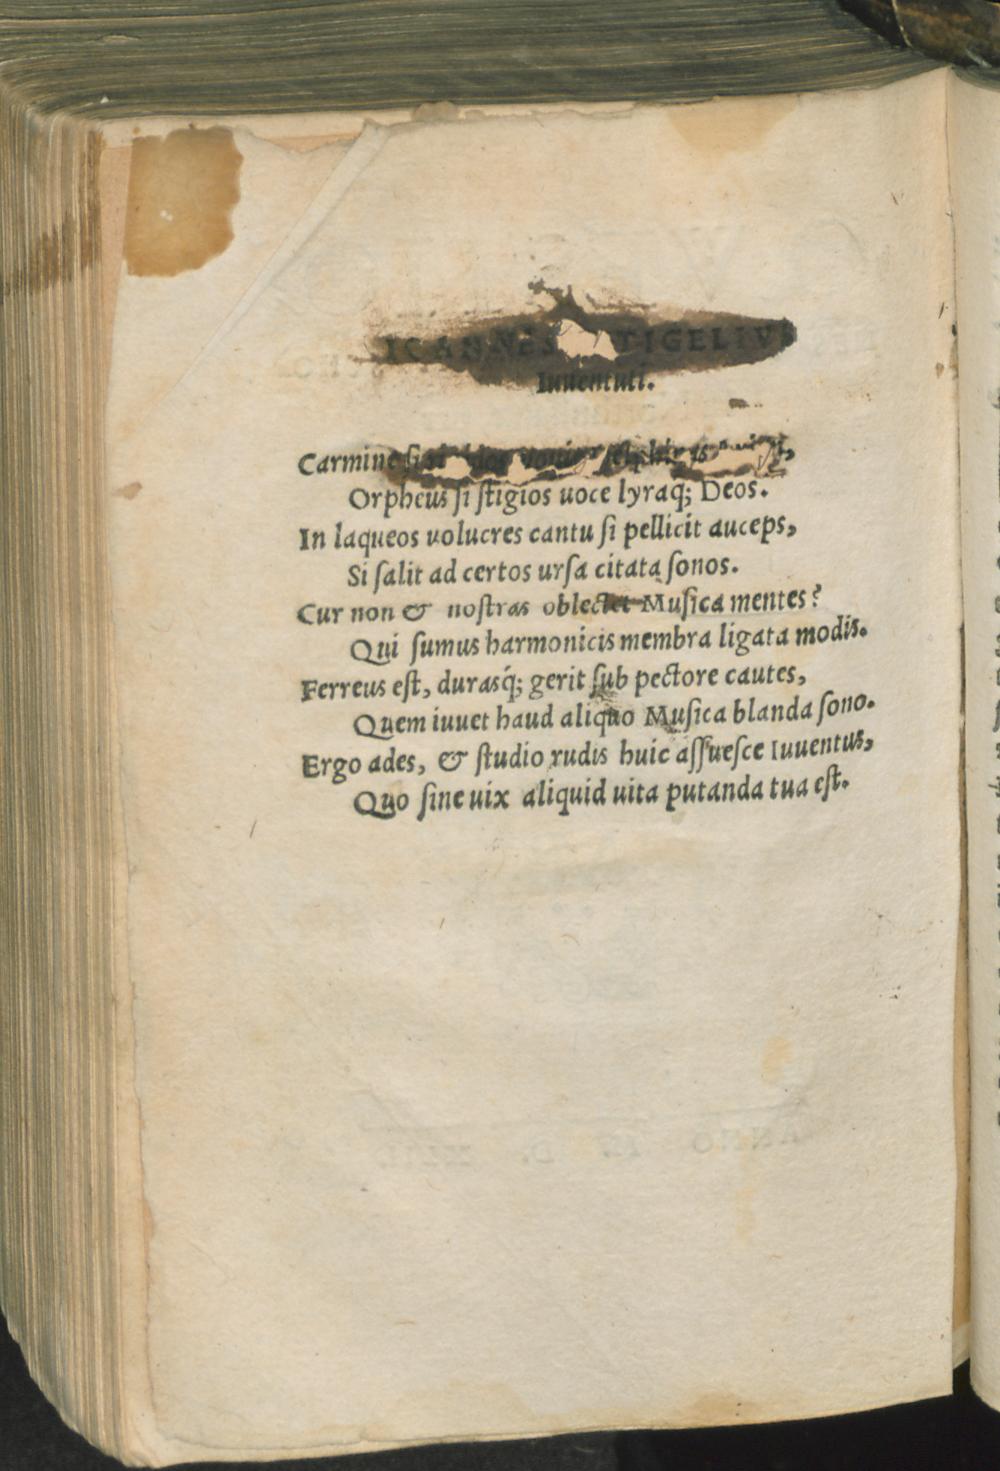 IOANNES STIGELIVS
Iuuentuti.
Carmine si
Orpheus si stigios uoce lyraq; Deos.
In laqueos uolucres cantu si pellicit auceps,
Si salit ad certos ursa citata sonos.
Cur non & nostras oblectet Musica mentes?
Qui sumus harmonicis membra ligata modis.
Ferreus est, durasq́; gerit sub pectore cautes,
Quem iuuet haud aliquo Musica blanda sono.
Ergo ades, & studio rudis huic assuesce Iuuentus,
Quo sine uix aliquid uita putanda tua est.